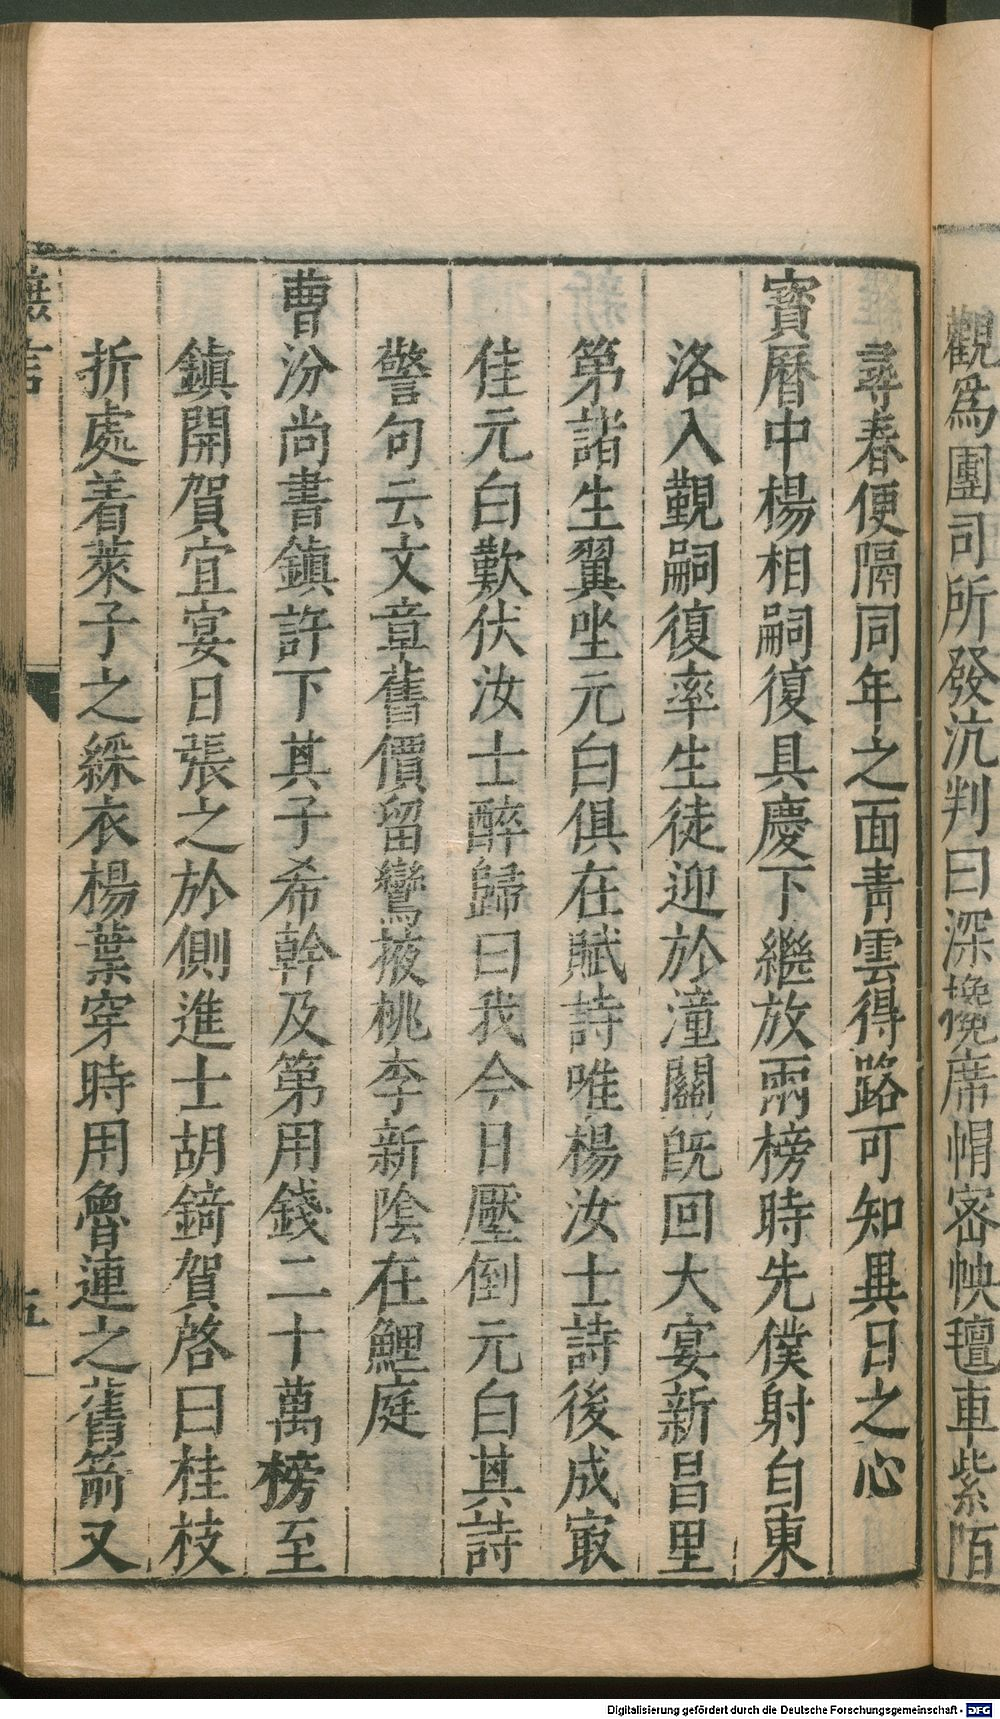 觀為團司所發沆判曰深攙席帽密帙氊車紫陌
尋春便隔同年之面青雲得路可知異日之心
寳曆中楊相嗣復具慶下繼放兩榜時先僕射自東
洛入覲嗣復率生徒迎於潼關旣回大宴新昌里
第諸生翼坐元白俱在賦詩唯楊汝士詩後成㝡
佳元白歎伏汝士醉歸曰我今日壓倒元白其詩
警句云文章舊價留鸞掖桃李新陰在鯉庭
曹汾尚書鎮許下其子希幹及第用錢二十萬榜至
鎮開賀宜宴日張之於側進士胡錡賀啓曰桂枝
折處着萊子之綵衣楊葉穿時用魯連之舊箭又
摭言
五
Digitalisierung gefördert durch die Deutsche Forschungsgemeinschaft - DFG